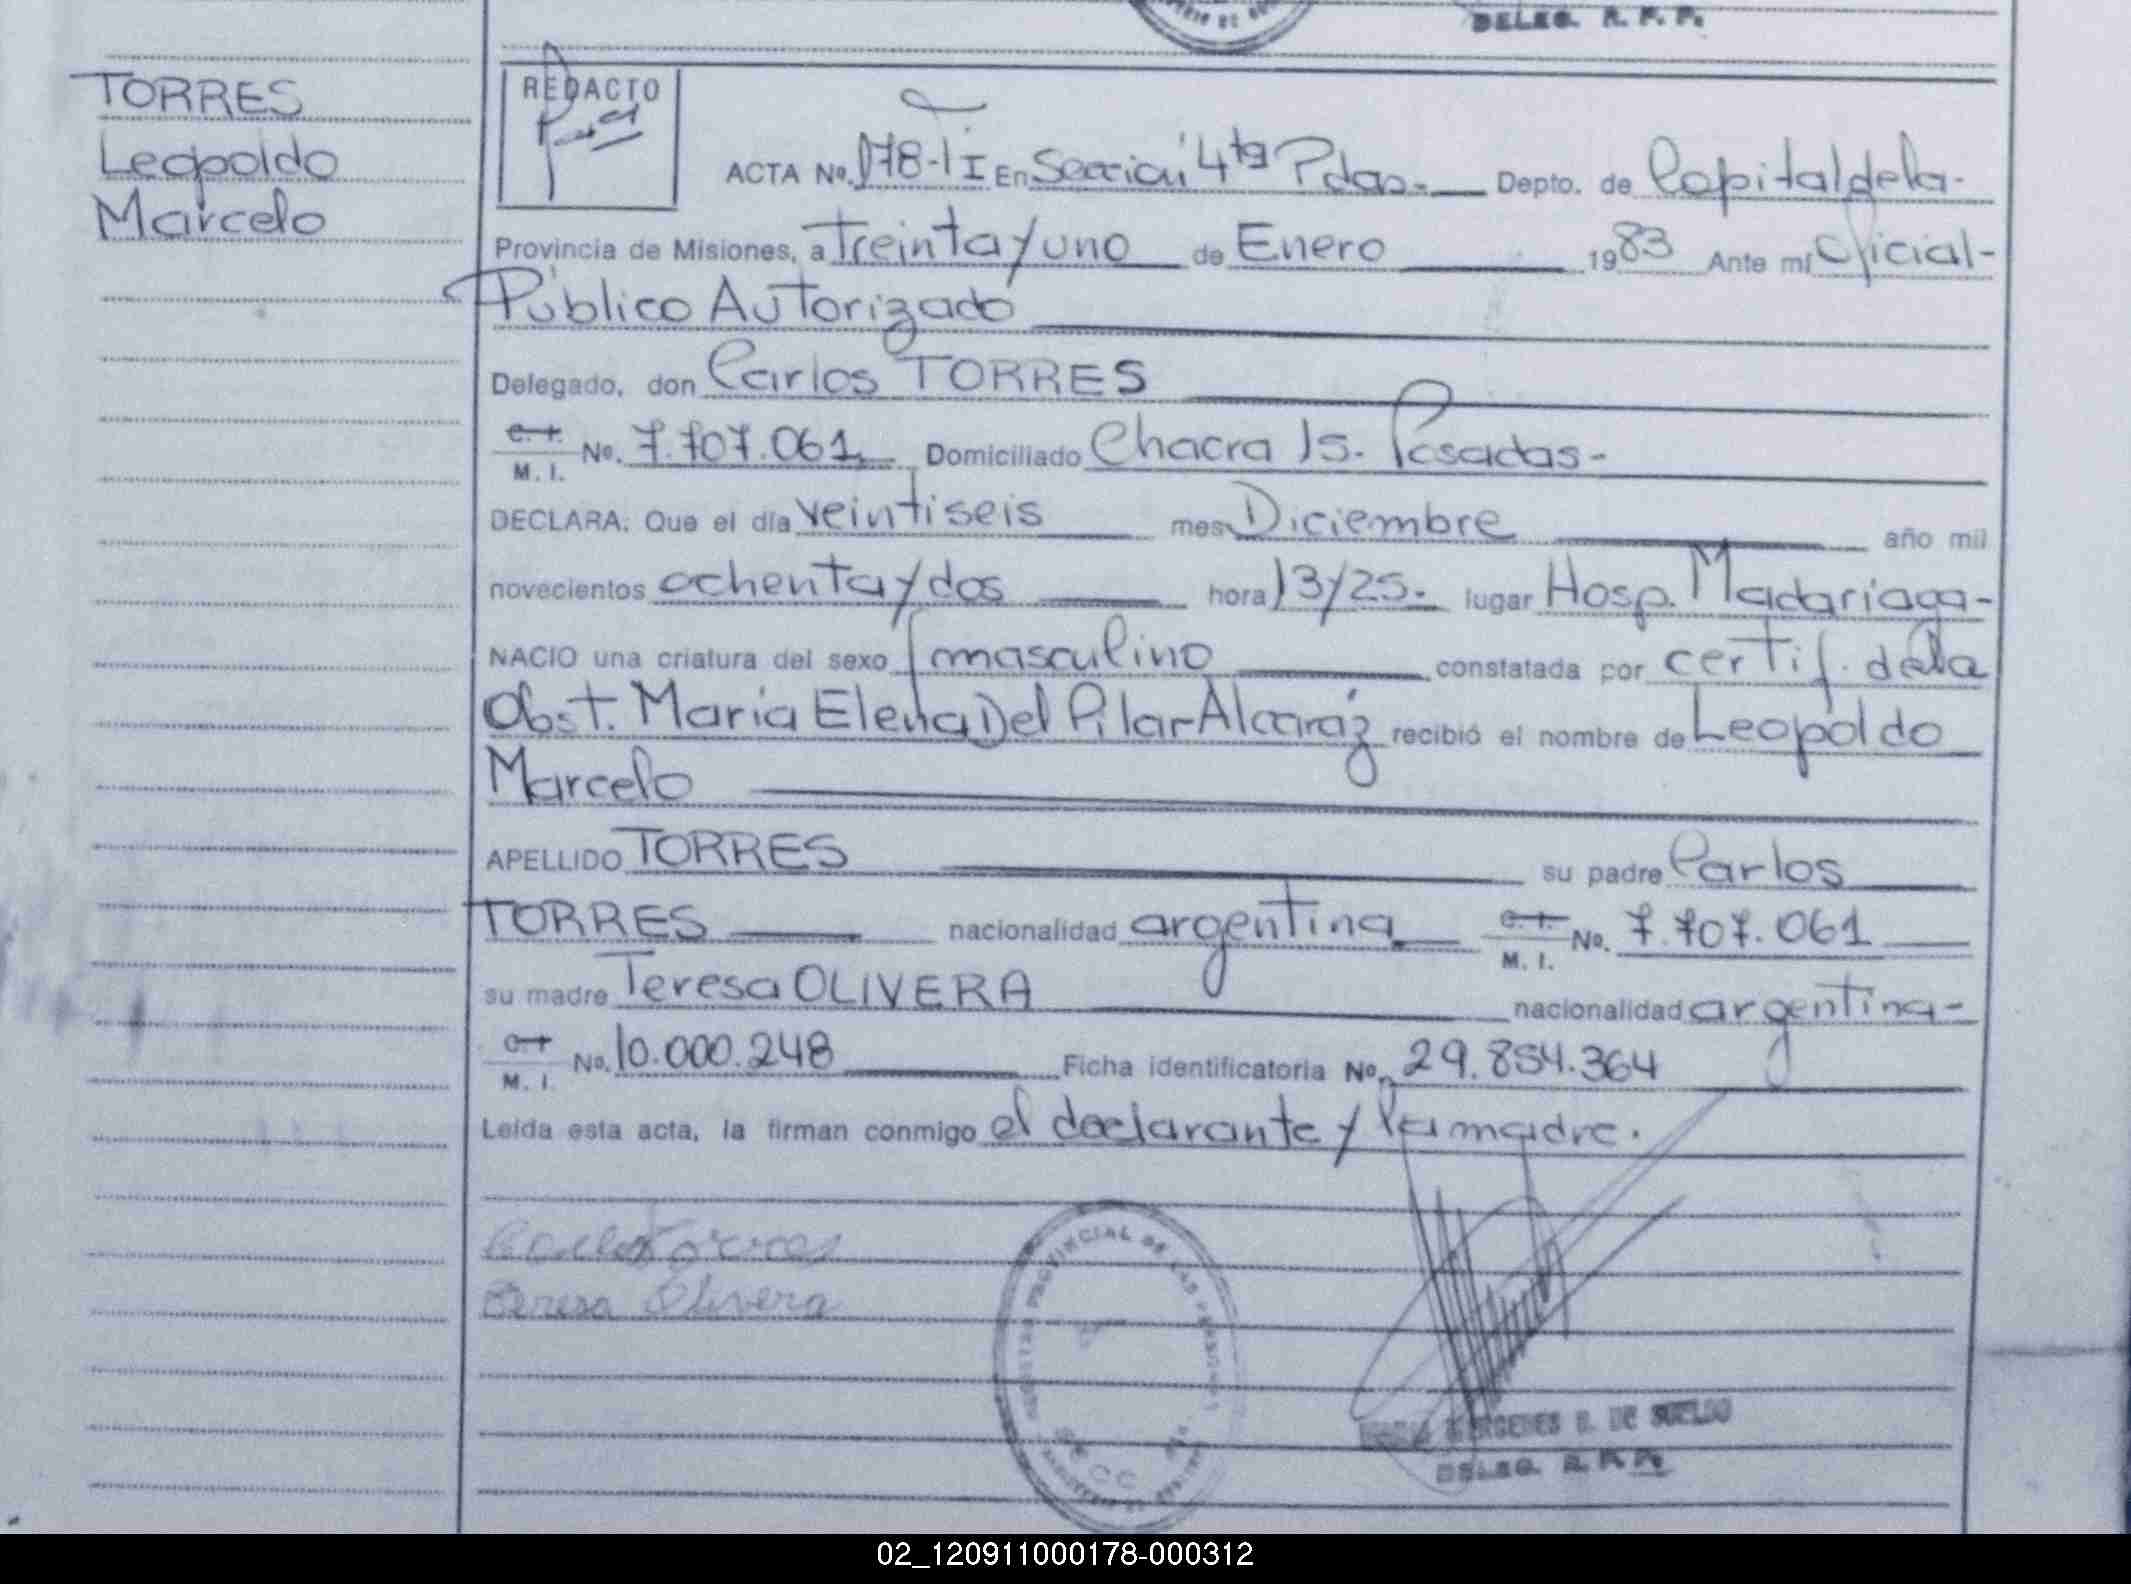 DELEG. R. P. P.
TORRES
Leopoldo
Marcelo
REDACTO
ACTA No. 178-TI En Sección 4ta Pdas. Depto. de Capital de la
Provincia de Misiones, a Treinta y uno de Enero 1983 Ante mí Oficial
Público Autorizado
Delegado, don Carlos TORRES
C. I. M. I. No. 7.707.061 Domiciliado Chacra 15. Posadas-
DECLARA: Que el día veintiseis mes Diciembre año mil
novecientos ochenta y dos hora 13/25. lugar Hosp. Madariaga-
NACIO una criatura del sexo masculino constatada por certif. de la
Obst. María Elena Del Pilar Alcaráz recibió el nombre de Leopoldo
Marcelo
APELLIDO TORRES su padre Carlos
TORRES nacionalidad argentina C. I. M. I. No. 7.707.061
su madre Teresa OLIVERA nacionalidad argentina-
C. I. M. I. No. 10.000.248 Ficha identificatoria No. 29.854.364
Leída esta acta, la firman conmigo el declarante y la madre.
Carlos Torres
Teresa Olivera
PROVINCIAL DE LAS PERSONAS
DE SUELDO
DELEG. R. P. P.
02_120911000178-000312